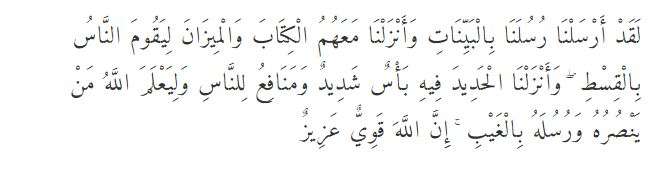 لَقَدْ أَرْسَلْنَا رُسُلَنَا بِالْبَيِّنَاتِ وَأَنْزَلْنَا مَعَهُمُ الْكِتَابَ وَالْمِيزَانَ لِيَقُومَ النَّاسُ
بِالْقِسْطِ ۖ وَأَنْزَلْنَا الْحَدِيدَ فِيهِ بَأْسٌ شَدِيدٌ وَمَنَافِعُ لِلنَّاسِ وَلِيَعْلَمَ اللَّهُ مَنْ
يَنْصُرُهُ وَرُسُلَهُ بِالْغَيْبِ ۚ إِنَّ اللَّهَ قَوِيٌّ عَزِيزٌ